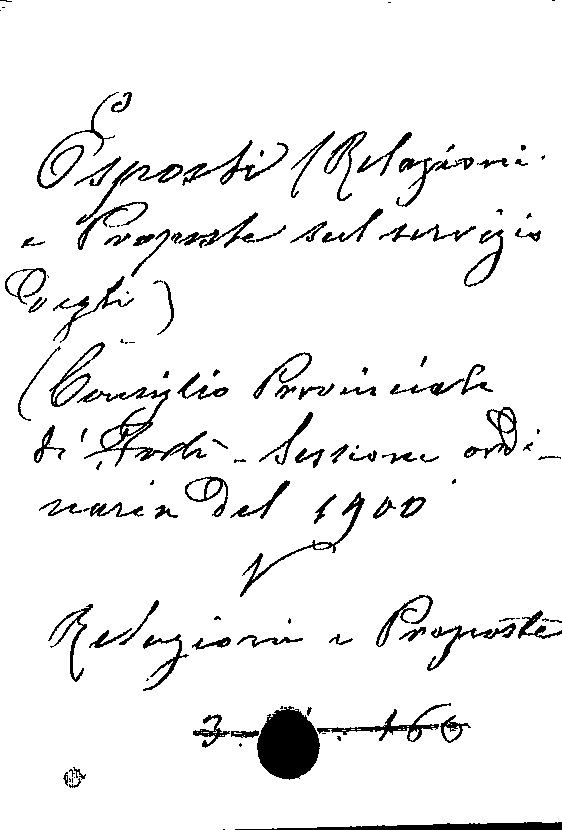 Esposti (Relazioni
e Proposte sul servizio
degli)
(Consiglio Provinciale
di Forlì - Sessione ordi-
naria del 1900
V
Relazioni e Proposte
3. . 166